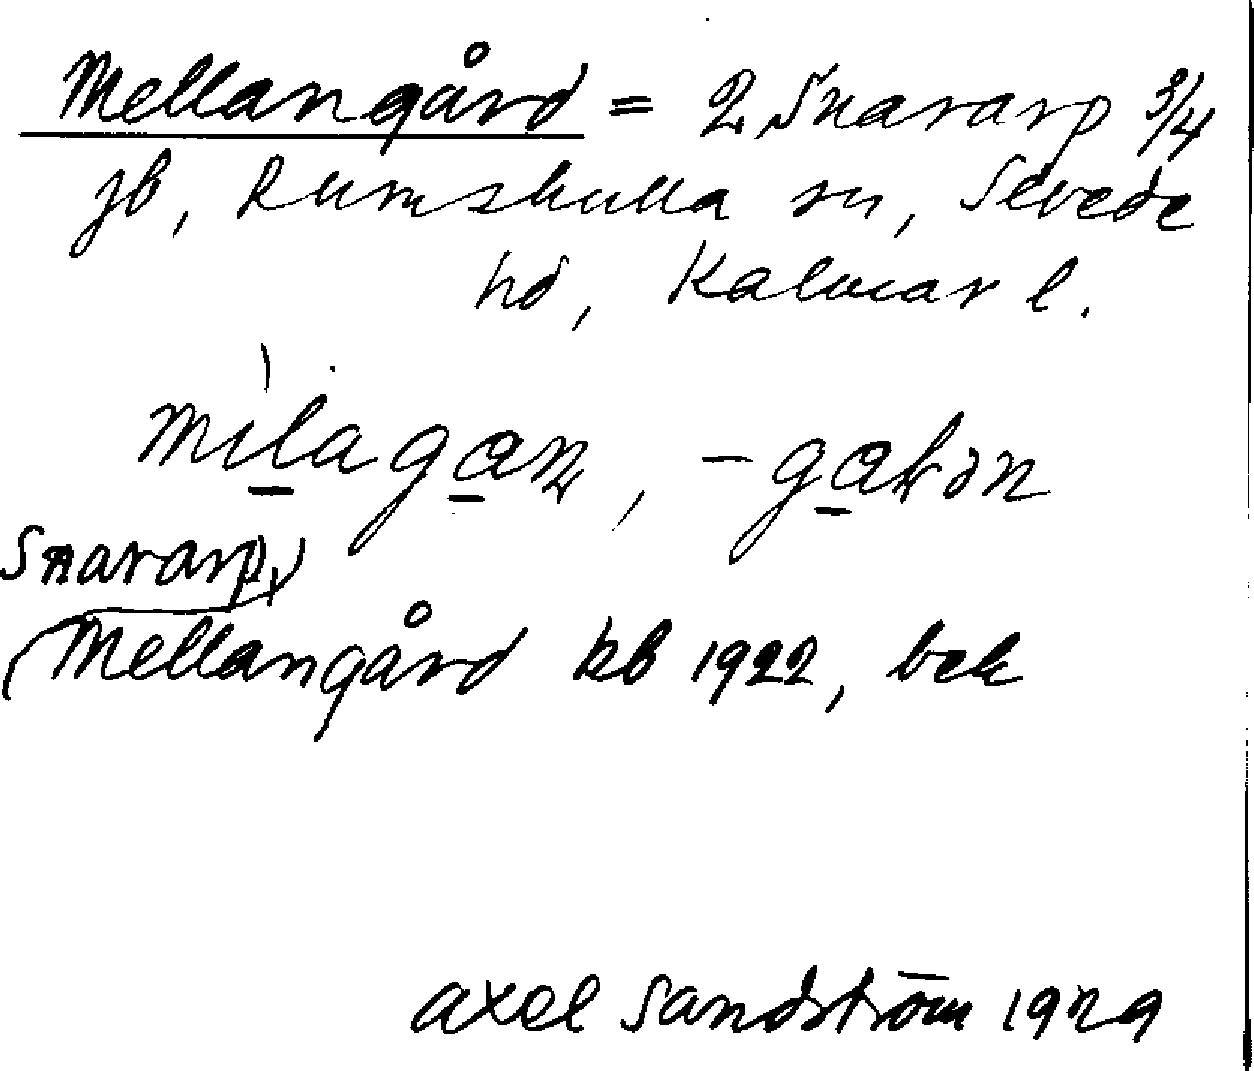 Mellangård = 2 Snararp 3/4
jb, Rumskulla sn, Sevede
hd, Kalmar l.
Snararp,
(Mellangård kb 1922, bek
Axel Sandström 1929